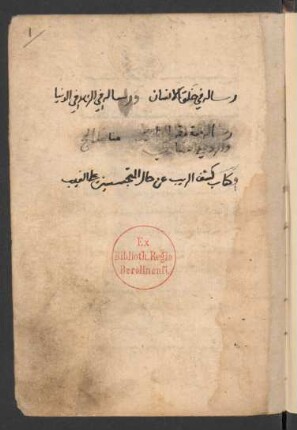 1
رساله في خلق الانسان ورساله في الزهد في الدنيا
رسالة
مناسك الحج
وكتاب كشف الريب عن حال المتجسسين علي الغيب
Ex
Biblioth. Regia
Berolinensi.